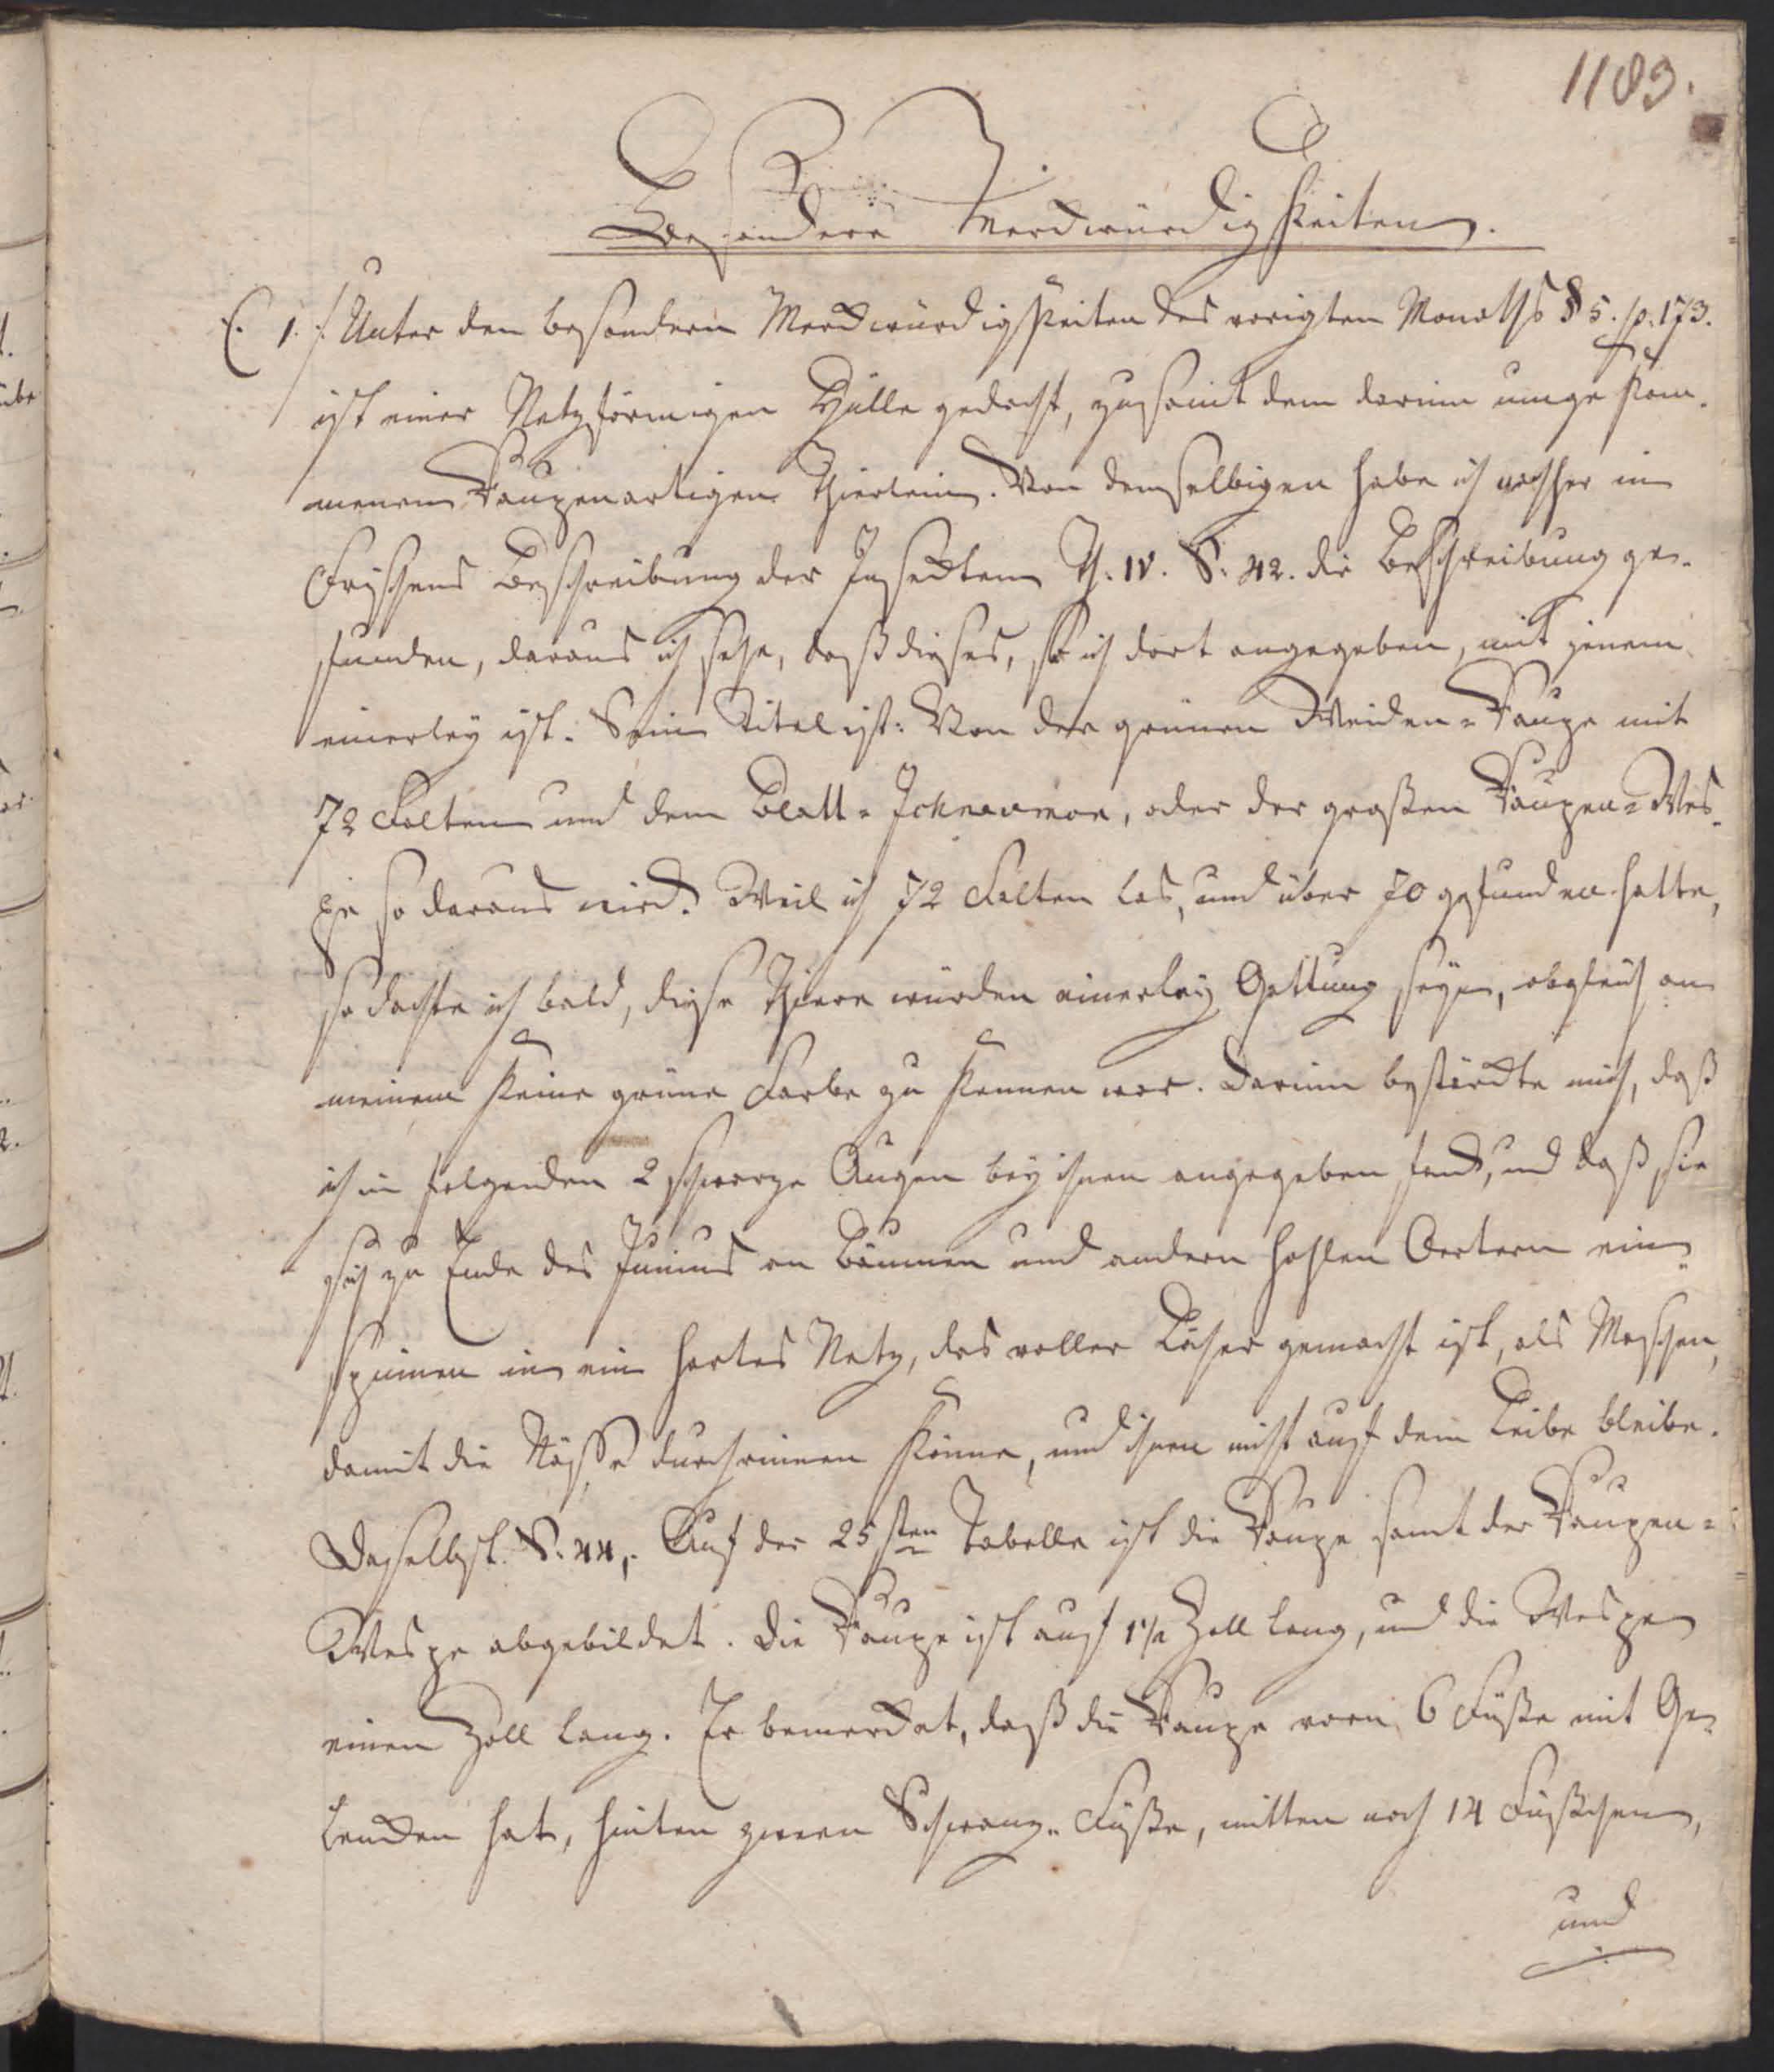 1183.
Besondere Merckwürdigkeiten.
C. 1. /: Unter den besondern Merckwürdigkeiten des vorigten Monaths § 5. p. 173.
ist einer Netzförmigen Hülle gedacht, zusamt dem darinn umgekom-
menen Raupenartigen Thierlein. Von demselbigen habe ich nachher in
Frischens Beschreibung der Insecten Th. IV. S. 42. die Beschreibung ge-
funden, daraus ich sehe, daß dieses, so ich dort angegeben, mit jenem
einerley ist. Sein Titel ist: Von der grünen Weiden-Raupe mit
72 Falten und dem Blatt-Ichneumon, oder der großen Raupen-Wes-
pe so daraus wird. Weil ich 72 Falten las, und über 70 gefunden hatte,
so dachte ich bald, diese Thiere würden einerley Gattung seyn, obgleich an
meinem keine grüne Farbe zu kennen war. Darinn bestärckte mich, daß
ich im folgenden 2 schwarze Augen bey ihnen angegeben fand, und daß sie
sich zu Ende des Junius an Bäumen und andern hohlen Oertern ein-
spinnen in ein hartes Netz, das voller Löcher gemacht ist, als Maschen,
damit die Nässe durchrinnen könne, und ihnen nicht auf dem Leibe bleibe.
Daselbst. S. 44,. Auf der 25sten Tabelle ist die Raupe samt der Raupen-
Wespe abgebildet. Die Raupe ist auf 1 1/2 Zoll lang, und die Wespe
einen Zoll lang. Er bemercket, daß die Raupe vorn 6 Füße mit Ge-
lencken hat, hinten zween Schwanz-Füße, mitten noch 14 Füßchen,
und